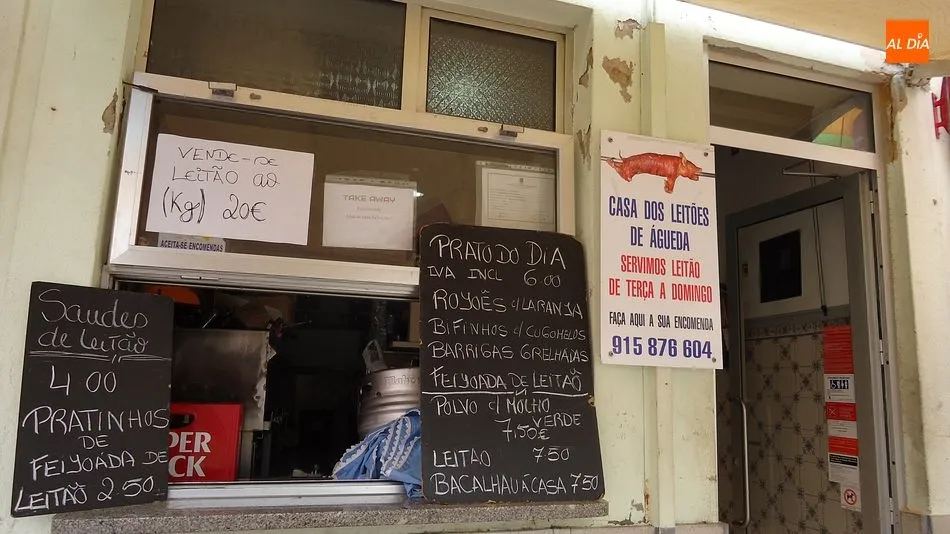 AL DiA
VENDE-DE
LEITÃO AO
(Kg) 20€
TAKE AWAY
ACEITA-SE ENCOMENDAS
Sandes
de Leitão
4 00
PRATINHOS
DE
FEIJOADA DE
LEITÃO 2.50
PER
CK
PRATO DO DIA
IVA INCL 6.00
ROJÕES C/LARANJA
BIFINHOS C/COGOMELOS
BARRIGAS GRELHADAS
FEIJOADA DE LEITÃO
POLVO C/ MOLHO
VERDE
7,50€
LEITÃO 7 50
BACALHAU À CASA 7 50
CASA DOS LEITÕES
DE ÁGUEDA
SERVIMOS LEITÃO
DE TERÇA A DOMINGO
FAÇA AQUI A SUA ENCOMENDA
915 876 604